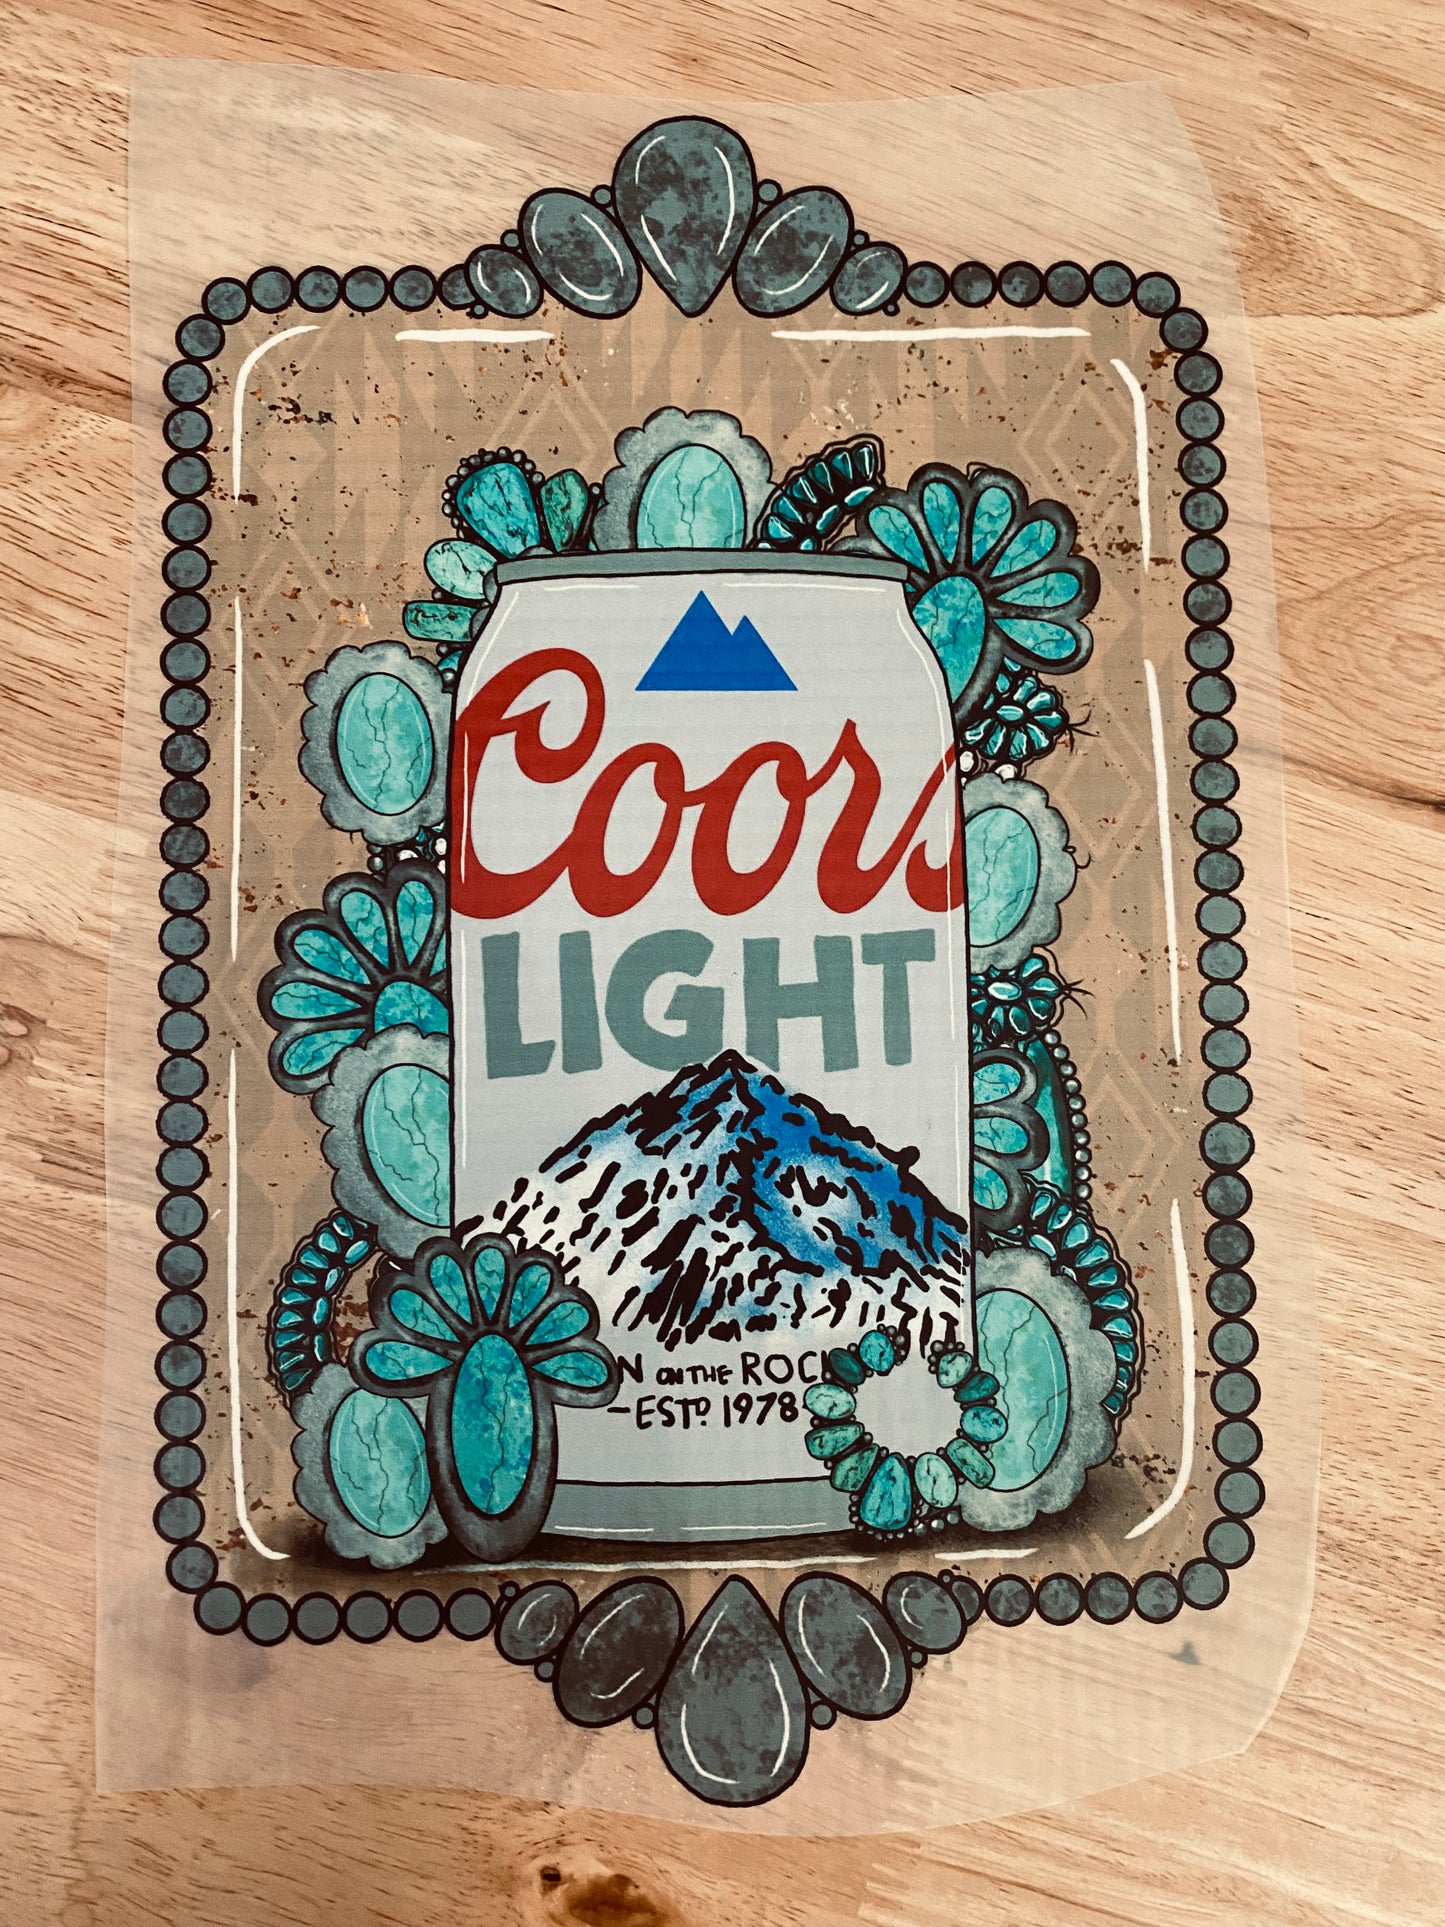 Coors
LIGHT
N ON THE ROC
-ESTD. 1978